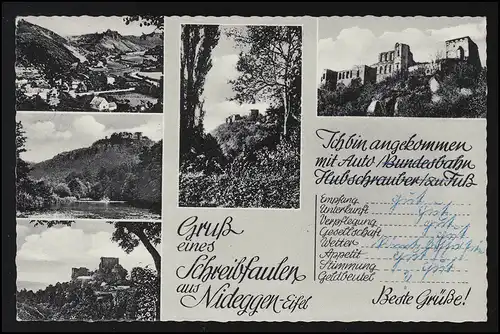 Gruß
eines
Schreibfaulen
aus Nideggen-Eifel
Ich bin angekommen
mit Auto/Bundesbahn
Hubschrauber/zu Fuß
Empfang gut
Unterkunft gut
Verpflegung gut
Gesellschaft gut
Wetter
Appetit gut
Stimmung gut
Geldbeutel
Beste Grüße!